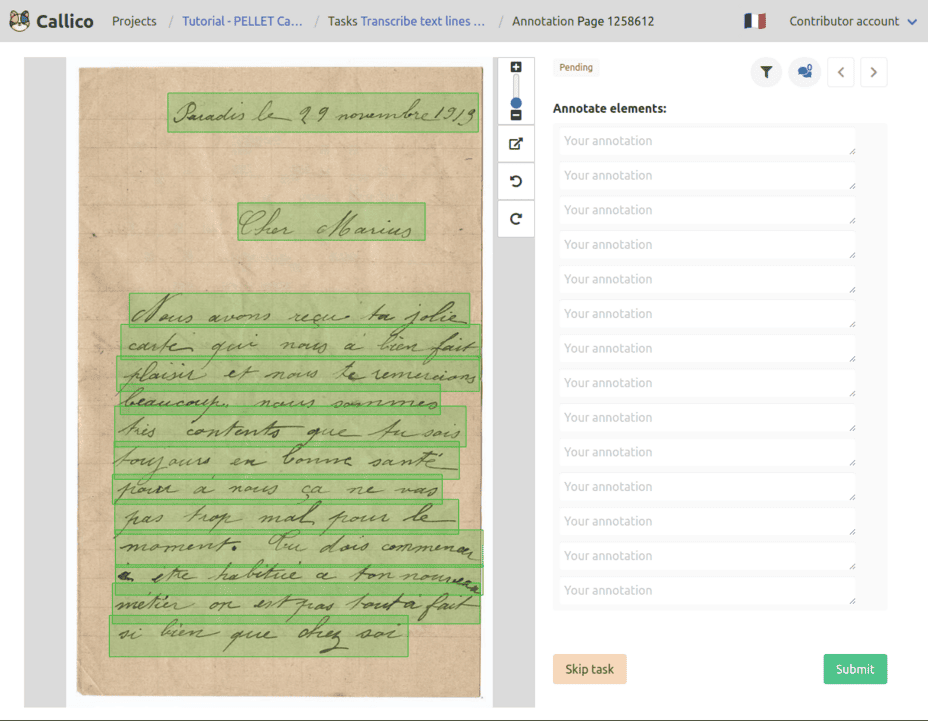 Callico Projects / Tutorial - PELLET Ca... / Tasks Transcribe text lines ... / Annotation Page 1258612 Contributor account
Paradis le 29 novembre 1913
Cher Marius
Nous avons reçu ta jolie
carte qui nous a bien fait
plaisir et nous te remercions
beaucoup, nous sommes
très contents que tu sois
toujours en bonne santé
pour à nous ça ne vas
pas trop mal pour le
moment. Tu dois commencer
a etre habitué a ton nouveau
métier on est pas tout à fait
si bien que chez soi
Pending
0
Annotate elements:
Your annotation
Your annotation
Your annotation
Your annotation
Your annotation
Your annotation
Your annotation
Your annotation
Your annotation
Your annotation
Your annotation
Your annotation
Your annotation
Your annotation
Skip task
Submit